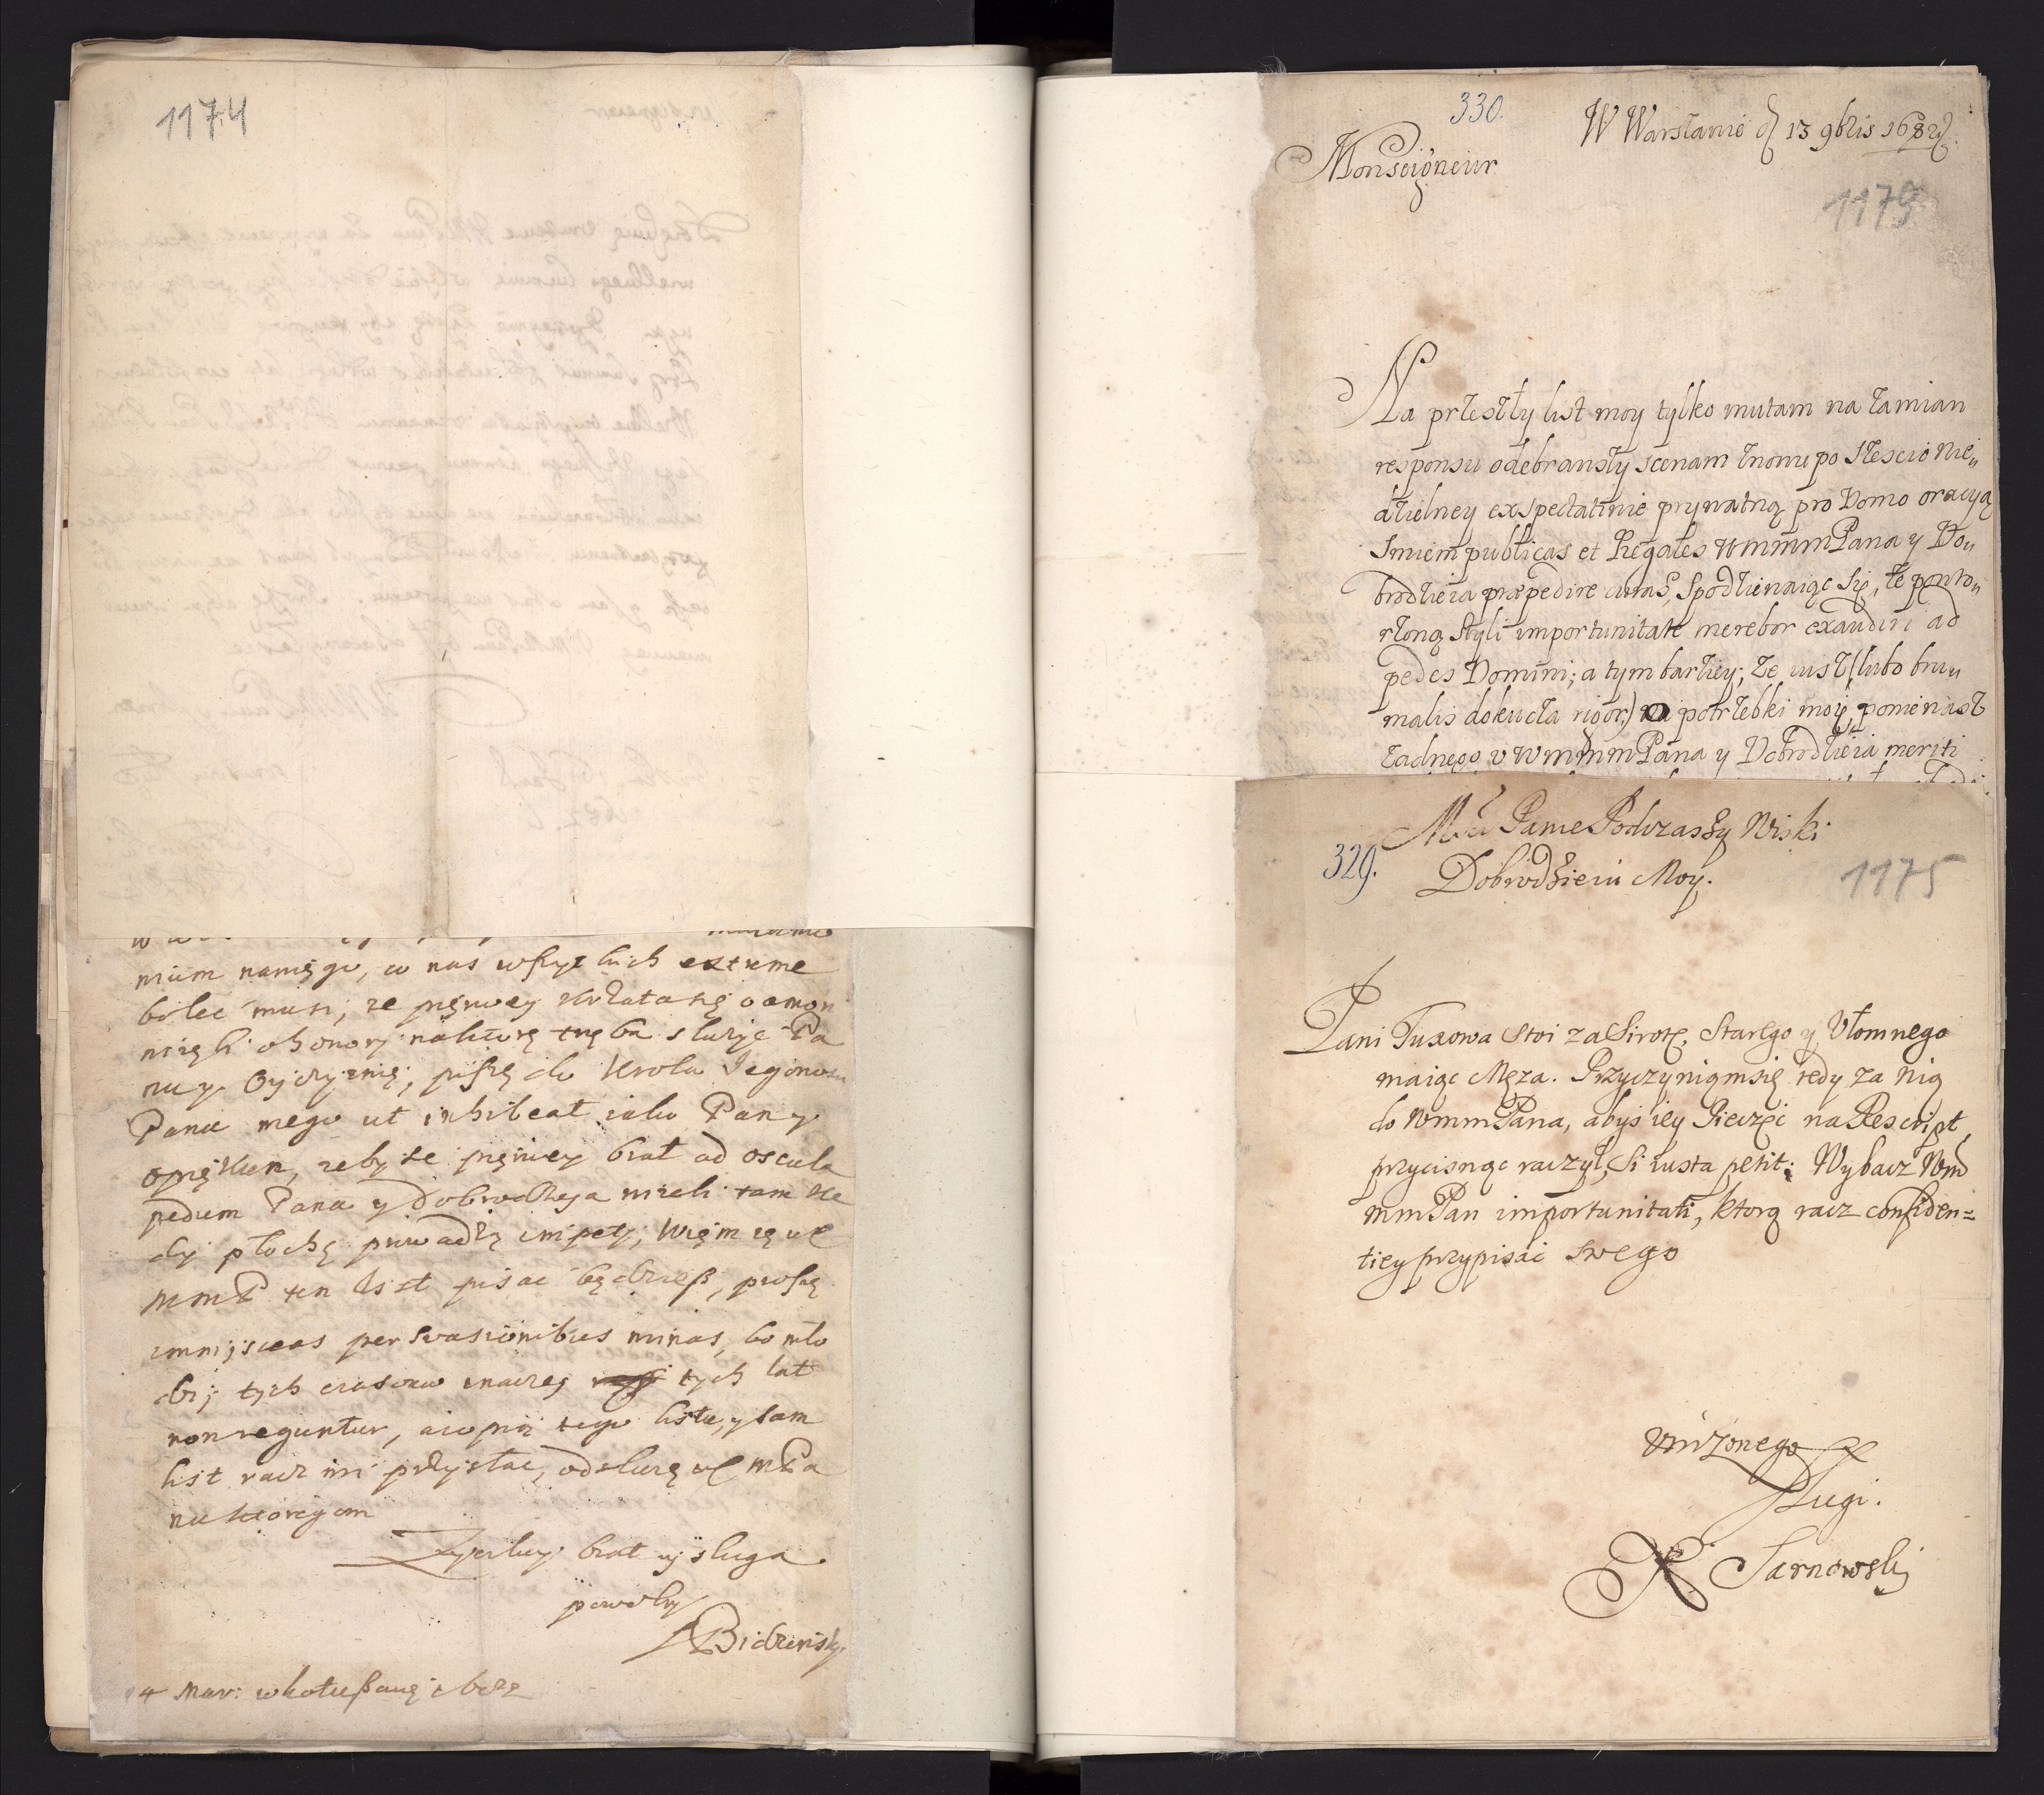 1174
nium namęgo, co nas wszytkich extreme
boleć musi, ze pęnwey
nu y Oyczyznię, piszę do Krola Jegomosci
Pana mego ut inhibeat iako Pan y
opiękun, zeby se pięniey brat ad oscula
pedum Pana y Dobrodzieja mieli tam kie
dy płochę prowadzą impety;
MmP ten list pisac będziesz, proszę
immisceas persvasionibus minas, bo mło
dzi tych czasow inaczej tych lat
non reguntur, a copią tego listu, y sam
list racz mi przysłac, odsłuzę WMPa
nu ktoregom
Zyczliwy brat y sługa
powolny
Bidzinsky
4 Mar:
330.
W Warszawie d 13 9bris 1682
Monseigneur
1179
Na przeszły list moy tylko mutam na zamian
responsu odebrawszy scenam znowu po szescio nie„
dzielney expectatiwie prywatną pro Domo oracyą
smiem publicas et Regales WmmmPana y Do„
brodzieia præpedire curas, spodziewaiąc się, że powto„
rzoną styli importunitate merebor exaudiri ad
pedes Domini; a tym barziey; że iusz (lubo bru„
malis dokucza rigor) na potrzebki moy, poniewasz
żadnego v WmmmPana y Dobrodzieia meriti
329.
Mści Panie Podczaszy Wiski
Dobrodzieiu Moy.
1175
Pani Tuxowa stoi za Sirotę, Starego y Vłomnego
maiąc Męza. Przyczyniąmsię tedy za nią
do WmmPana, abyś iey Pieczęć na Rescript
przycisnąc raczył, Si iusta petit: Wybacz Wm
mmPan importunitati, ktorą racz confiden=
tiey przypisać swego
Vnizonego
Sługi.
Sarnowski